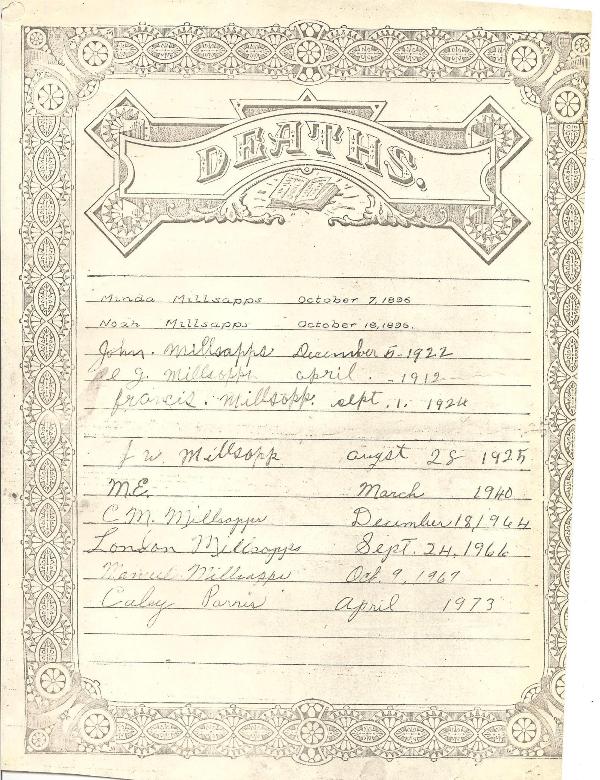 DEATHS.
Minda Millsapps October 7, 1896
Noah Millsapps October 18, 1895.
John. Millsapps December 5-1922
g. Millsapps april. - 1912
francis. Millsapp. sept. 1. 1924
J W. Millsapp augst 28 1925
M.E. March 1940
C. M. Millsapps December 18, 1964
London Millsapps Sept. 24, 1966
Millsapps Oct. 9, 1967
Caley Parris April 1973